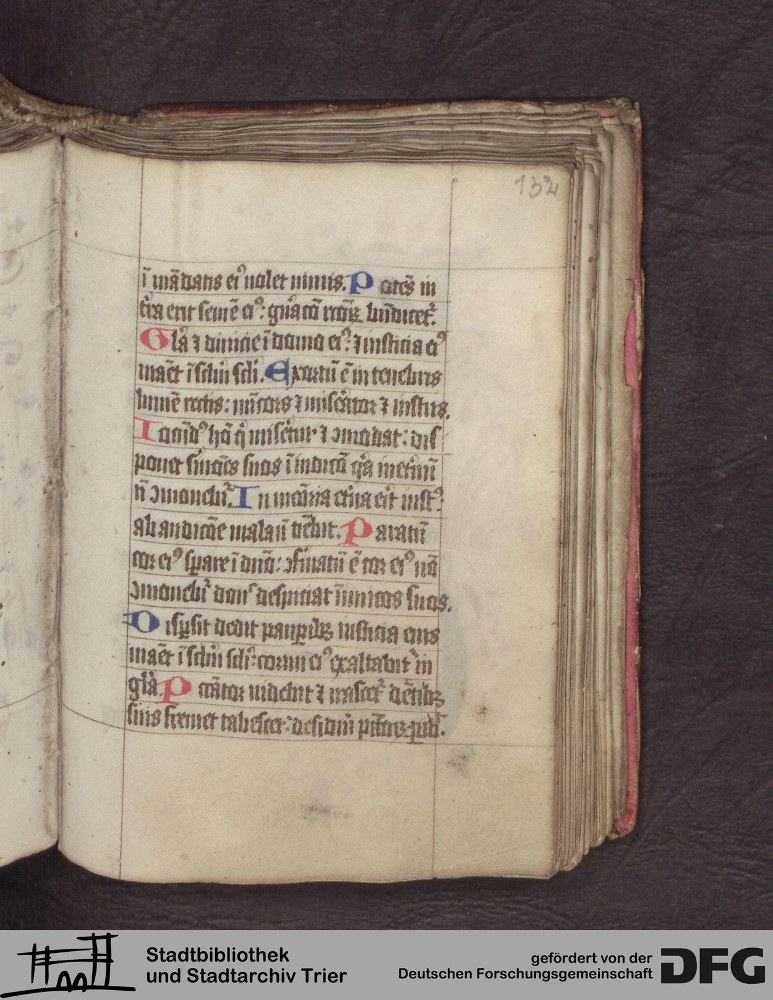 132
ī mādatis eiꝰ uolet nimis. Potēs in
t̄ra erit semē eiꝰ: gn̄acō rectoꝝ bn̄dicet᷑.
Gla ⁊ diuicie ī domo eiꝰ: ⁊ iusticia eiꝰ
manēt ī sclm̄ scli. Exortū ē in tenebris
lumē rectis: misc̄ors ⁊ misērator ⁊ iustus.
Iocūdꝰ hō q̇ miseretur ⁊ ɔmodat: dis
ponet s̄mōes suos ī iudicō q̇a inet̄nū
nō ɔmouebit᷑. In memōria et̄na erit iust᷒:
ab audicōe mala nō timebit. Paratū
cor eiꝰ sperare ī dno: ɔfirmatū ē cor eiꝰ nō
ɔmouebit᷑ donᵉᶜ despiciat inimicos suos.
Dispersit dedit paupibꝫ iusticia eius
manēt ī sclm̄ scli: cornu eiꝰ exaltabit᷑ in
gla. Pccātor uidebit ⁊ irascet᷑ dētibꝫ
suis fremet tabescet: desideriū pctōrꝝ pibit.
Stadtbibliothek
und Stadtarchiv Trier
gefördert von der
Deutschen Forschungsgemeinschaft
DFG